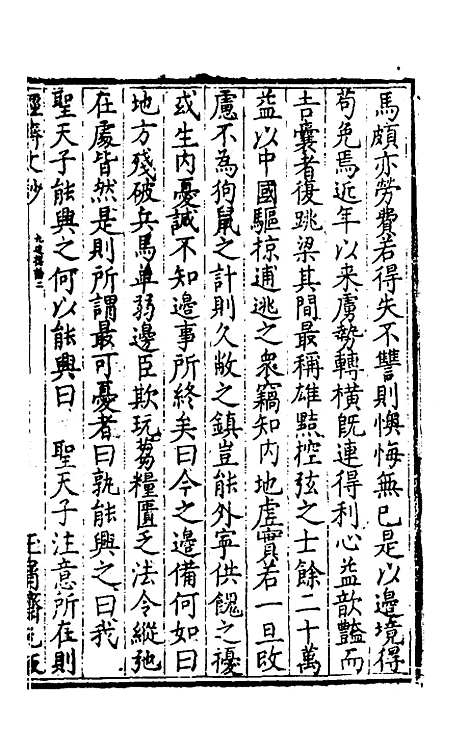 馬頗亦勞費若得失不讐則懊悔無已是以邊境得
苟免焉近年以来虜勢轉橫既連得利心益歆豔而
吉囊者復跳梁其間最稱雄黠控弦之士餘二十萬
益以中國驅掠逋逃之衆竊知内地虚實若一旦改
慮不為狗鼠之計則久敝之鎮豈能外寧供餽之擾
或生内憂誠不知邊事所終矣曰今之邊備何如曰
地方殘破兵馬单弱邊臣欺玩芻糧匱乏法令縱弛
在處皆然是則所謂最可憂者曰孰能興之曰我
聖天子能興之何以能興曰 聖天子注意所在則
經濟文鈔 九邊揔論二